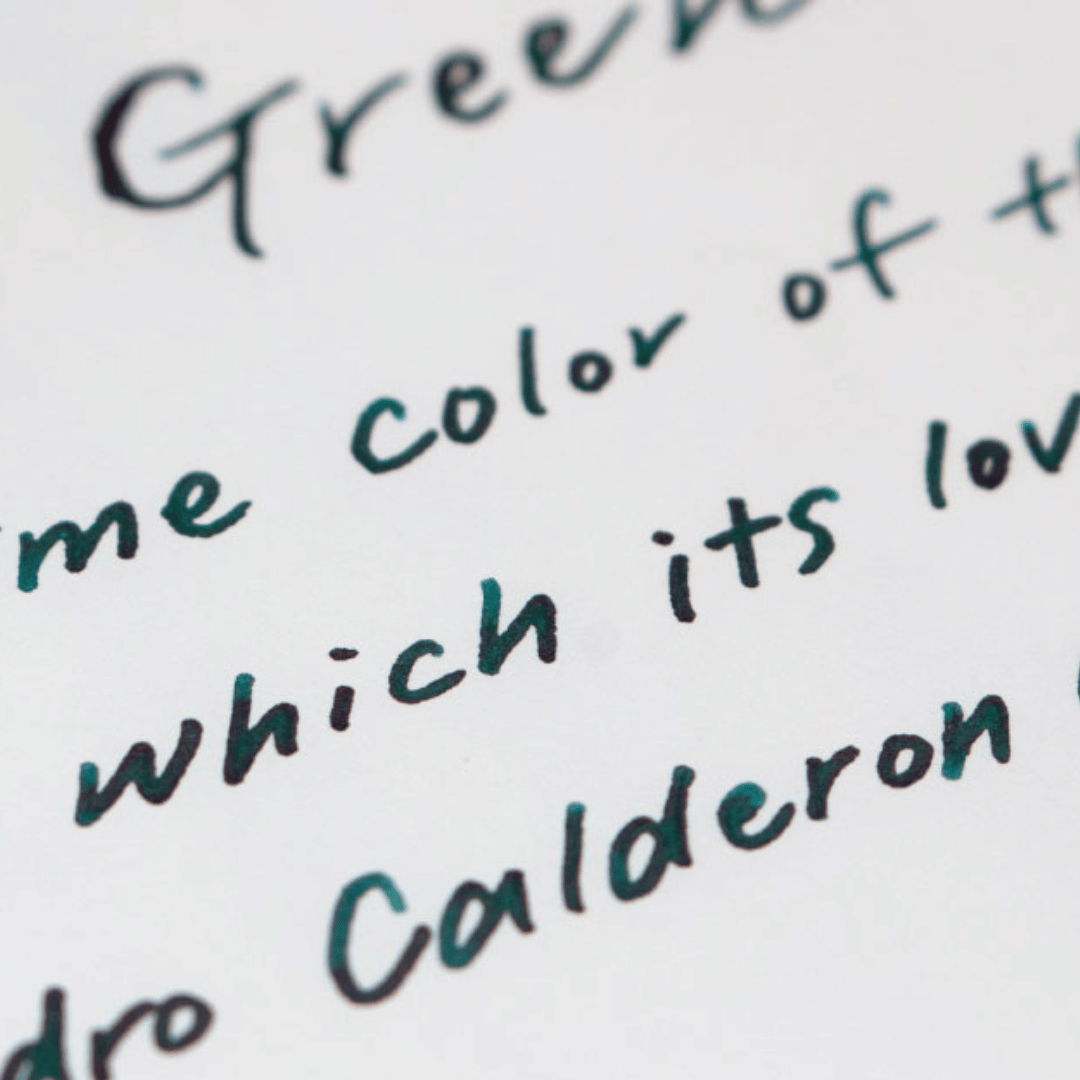 Green
me color of th
which its lov
dro Calderon